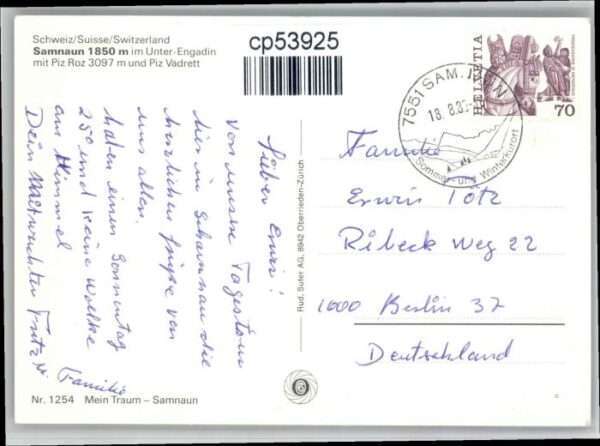 Schweiz/Suisse/Switzerland
Samnaun 1850 m im Unter-Engadin
mit Piz Roz 3097 m und Piz Vadrett
cp53925
HELVETIA
70
7551 SAMNAUN
18. 8.
Sommer- und Winterkurort
Lieber Erwin!
Von unserer Tagestour
hier in Samnaun die
herzlichsten Grüße von
uns allen.
Haben einen Sonnentag
25° und keine Wolke
am Himmel
Dein Fritz u.
Familie
Rud. Suter AG, 8942 Oberrieden-Zürich
Familie
Erwin Totz
Ribeck Weg 22
1000 Berlin 37
Deutschland
Nr. 1254 Mein Traum – Samnaun